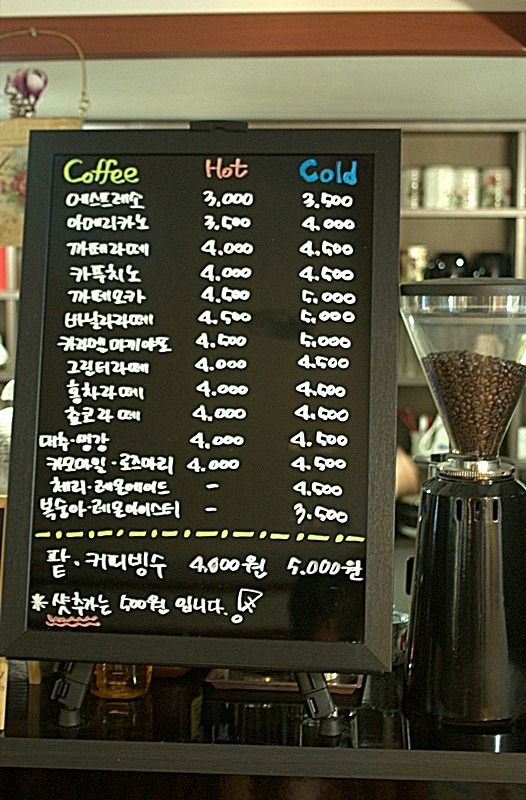 Coffee Hot Cold
에스프레소 3,000 3,500
아메리카노 3,500 4,000
까페라떼 4,000 4,500
카푸치노 4,000 4,500
까페모카 4,500 5,000
바닐라라떼 4,500 5,000
카라멜 마키아또 4,500 5,000
그린티라떼 4,000 4,500
홍차라떼 4,000 4,500
쵸코라떼 4,000 4,500
대추·생강 4,000 4,500
카모마일·로즈마리 4,000 4,500
체리·레몬에이드 - 4,500
복숭아·레몬아이스티 - 3,500
팥·커피빙수 4,000원 5,000원
* 샷추가는 500원 입니다.